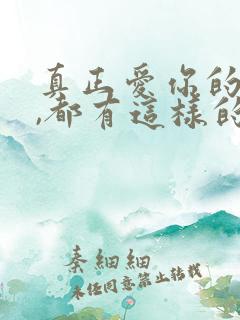 真正愛你的
,都有這樣的
秦細細
未任同意禁止转载